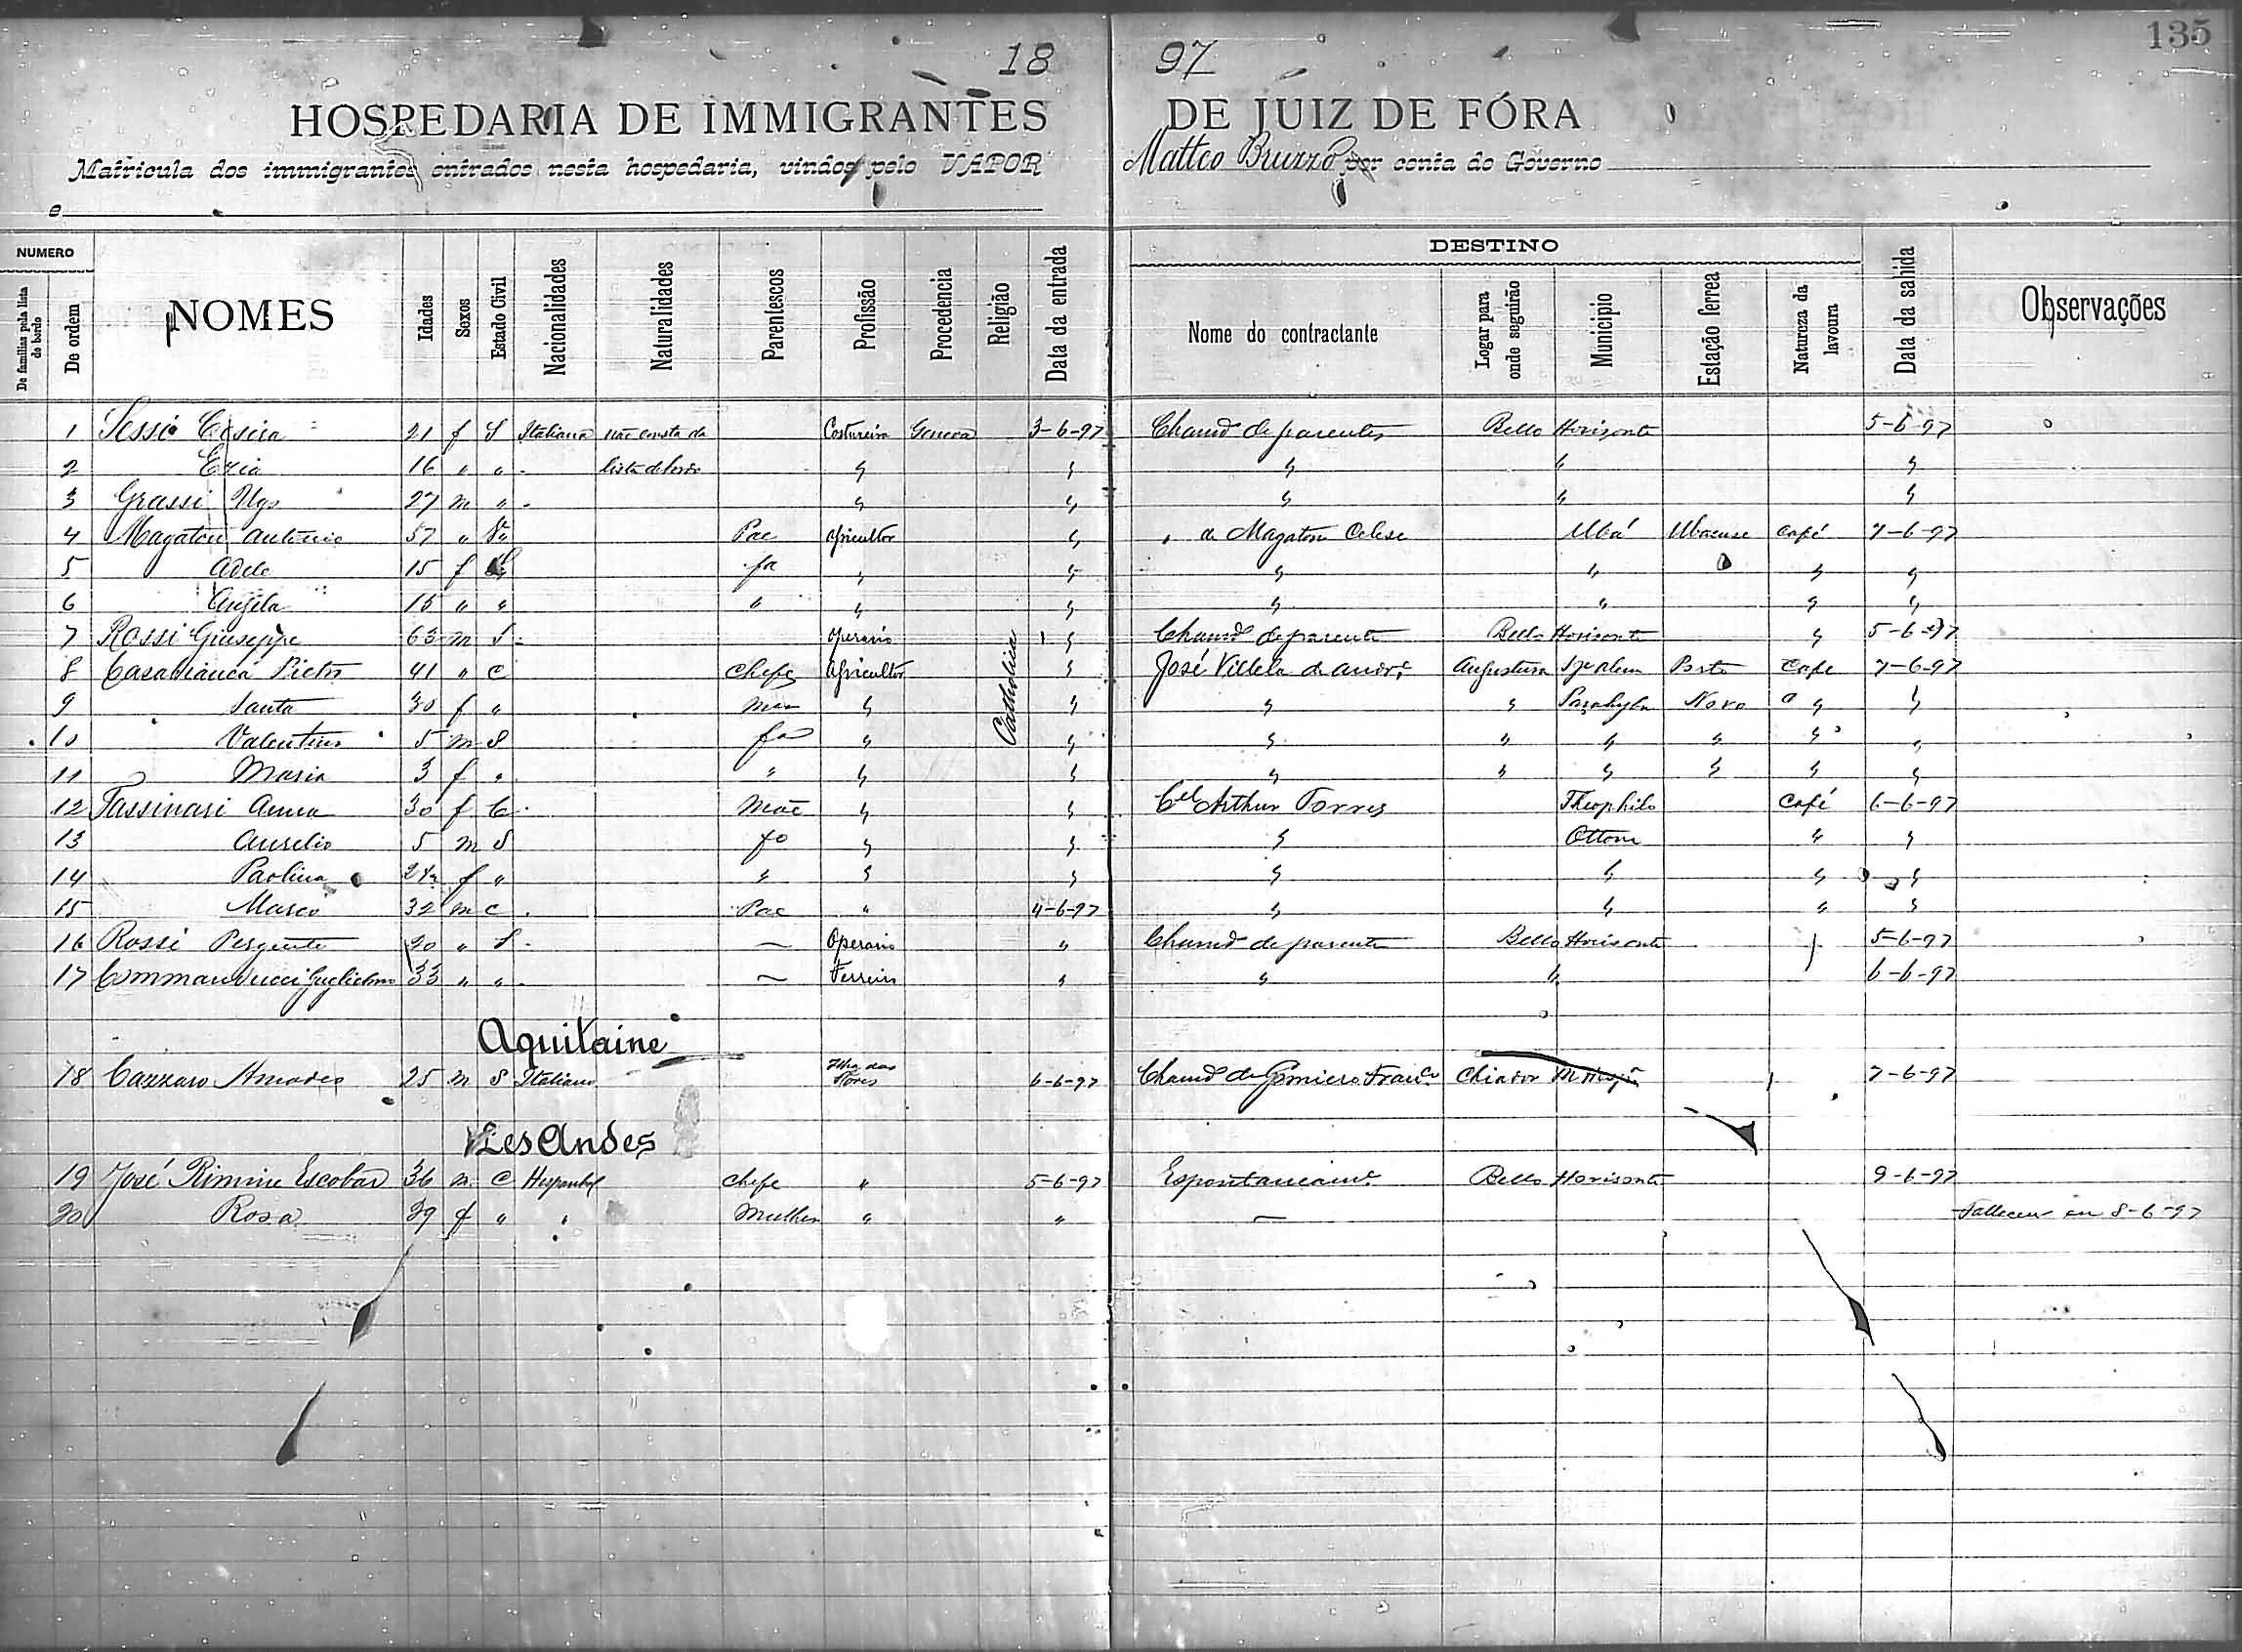 135
18 97
HOSPEDARIA DE IMMIGRANTES DE JUIZ DE FÓRA
Matricula dos immigrantes entrados nesta hospedaria, vindos pelo VAPOR Matteo Bruzzo por conta do Governo
e
NUMERO DESTINO
De familias pela lista de bordo De ordem NOMES Idades Sexos Estado Civil Nacionalidades Naturalidades Parentescos Profissão Procedencia Religião Data da entrada Nome do contractante Logar para onde seguirão Municipio Estação ferrea Natureza da lavoura Data da sahida Observações
1 Sessi 21 f S Italiana não consta da Costureira Genova 3-6-97 Chamdo de parentes Bello Horisonte 5-6-97
2 16 " " lista de bordo " " " " "
3 Grassi Ugo 27 m " " " " " "
4 Magaton Antonio 57 " Vo Pae Agricultor " " de Magaton Celese Ubá Ubaense Café 7-6-97
5 Adele 15 f S fa " " " " " "
6 Angela " " " " " " " " "
7 Rossi Giuseppe 63 m S Operario " Chamdo de parente Bello Horisonte " 5-6-97
8 Casabianca Pietro 41 " C Chefe Agricultor " José Villela de Andre Angustura S. José Alem Porto Cafe 7-6-97
9 Santa 30 f " mer " Catholica " " " Parahyba Novo " "
10 Valentino 5 m S fo " " " " " " " "
11 Maria 3 f " " " " " " " " " "
12 Tassinari Anna 30 f C Mãe " " Cel Arthur Torres Theophilo Café 6-6-97
13 Aurelio 5 m S fo " " " Ottoni " "
14 Paolina f " " " " " " " "
15 Marco 32 m C Pae " 4-6-97 " " " "
16 Rossi 20 " S — Operario " Chamdo de parente Bello Horisonte 5-6-97
17 Commanducci Guglielmo 33 " " — Ferreiro " " " 6-6-97
Aquitaine
18 Cazzaro Amadeo 25 m S Italiano Ilha das Flores 6-6-97 Chamdo de Franco Chiador 7-6-97
Les Andes
19 José Escobar 36 m C Hespanhol Chefe " 5-6-97 Espontaneamte Bello Horisonte 9-6-97
20 Rosa 29 f " " Mulher " " — Falleceu em 8-6-97